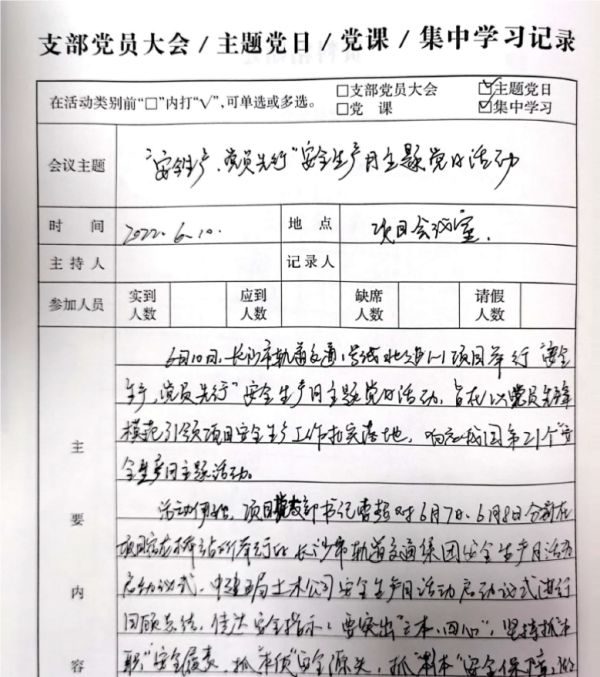 支部党员大会/主题党日/党课/集中学习记录
在活动类别前“□”内打“√”,可单选或多选。 □支部党员大会 ☑主题党日
□党 课 ☑集中学习
会议主题 “安全生产、党员先行”安全生产月主题党日活动
时 间 2022.6.10. 地 点 项目会议室.
主持人 记录人
参加人员 实到人数 应到人数 缺席人数 请假人数
主要内容
6月10日,长沙市轨道交通1号线北延 项目举行“安全
生产,党员先行”安全生产月主题党日活动,旨在以党员先锋
模范引领项目安全生产工作扎实落地,响应我国第21个“安
全生产月主题活动。
活动伊始,项目党支部书记 对6月7日、6月8日分别在
项目 举行的长沙市轨道交通集团安全生产月活动
启动仪式、中建五局土木公司安全生产月活动启动仪式进行
回顾总结,传达安全指示:要突出“三本、四心”,坚持抓“本
职”安全履责,抓“本质”安全源头,抓“本”安全保障;